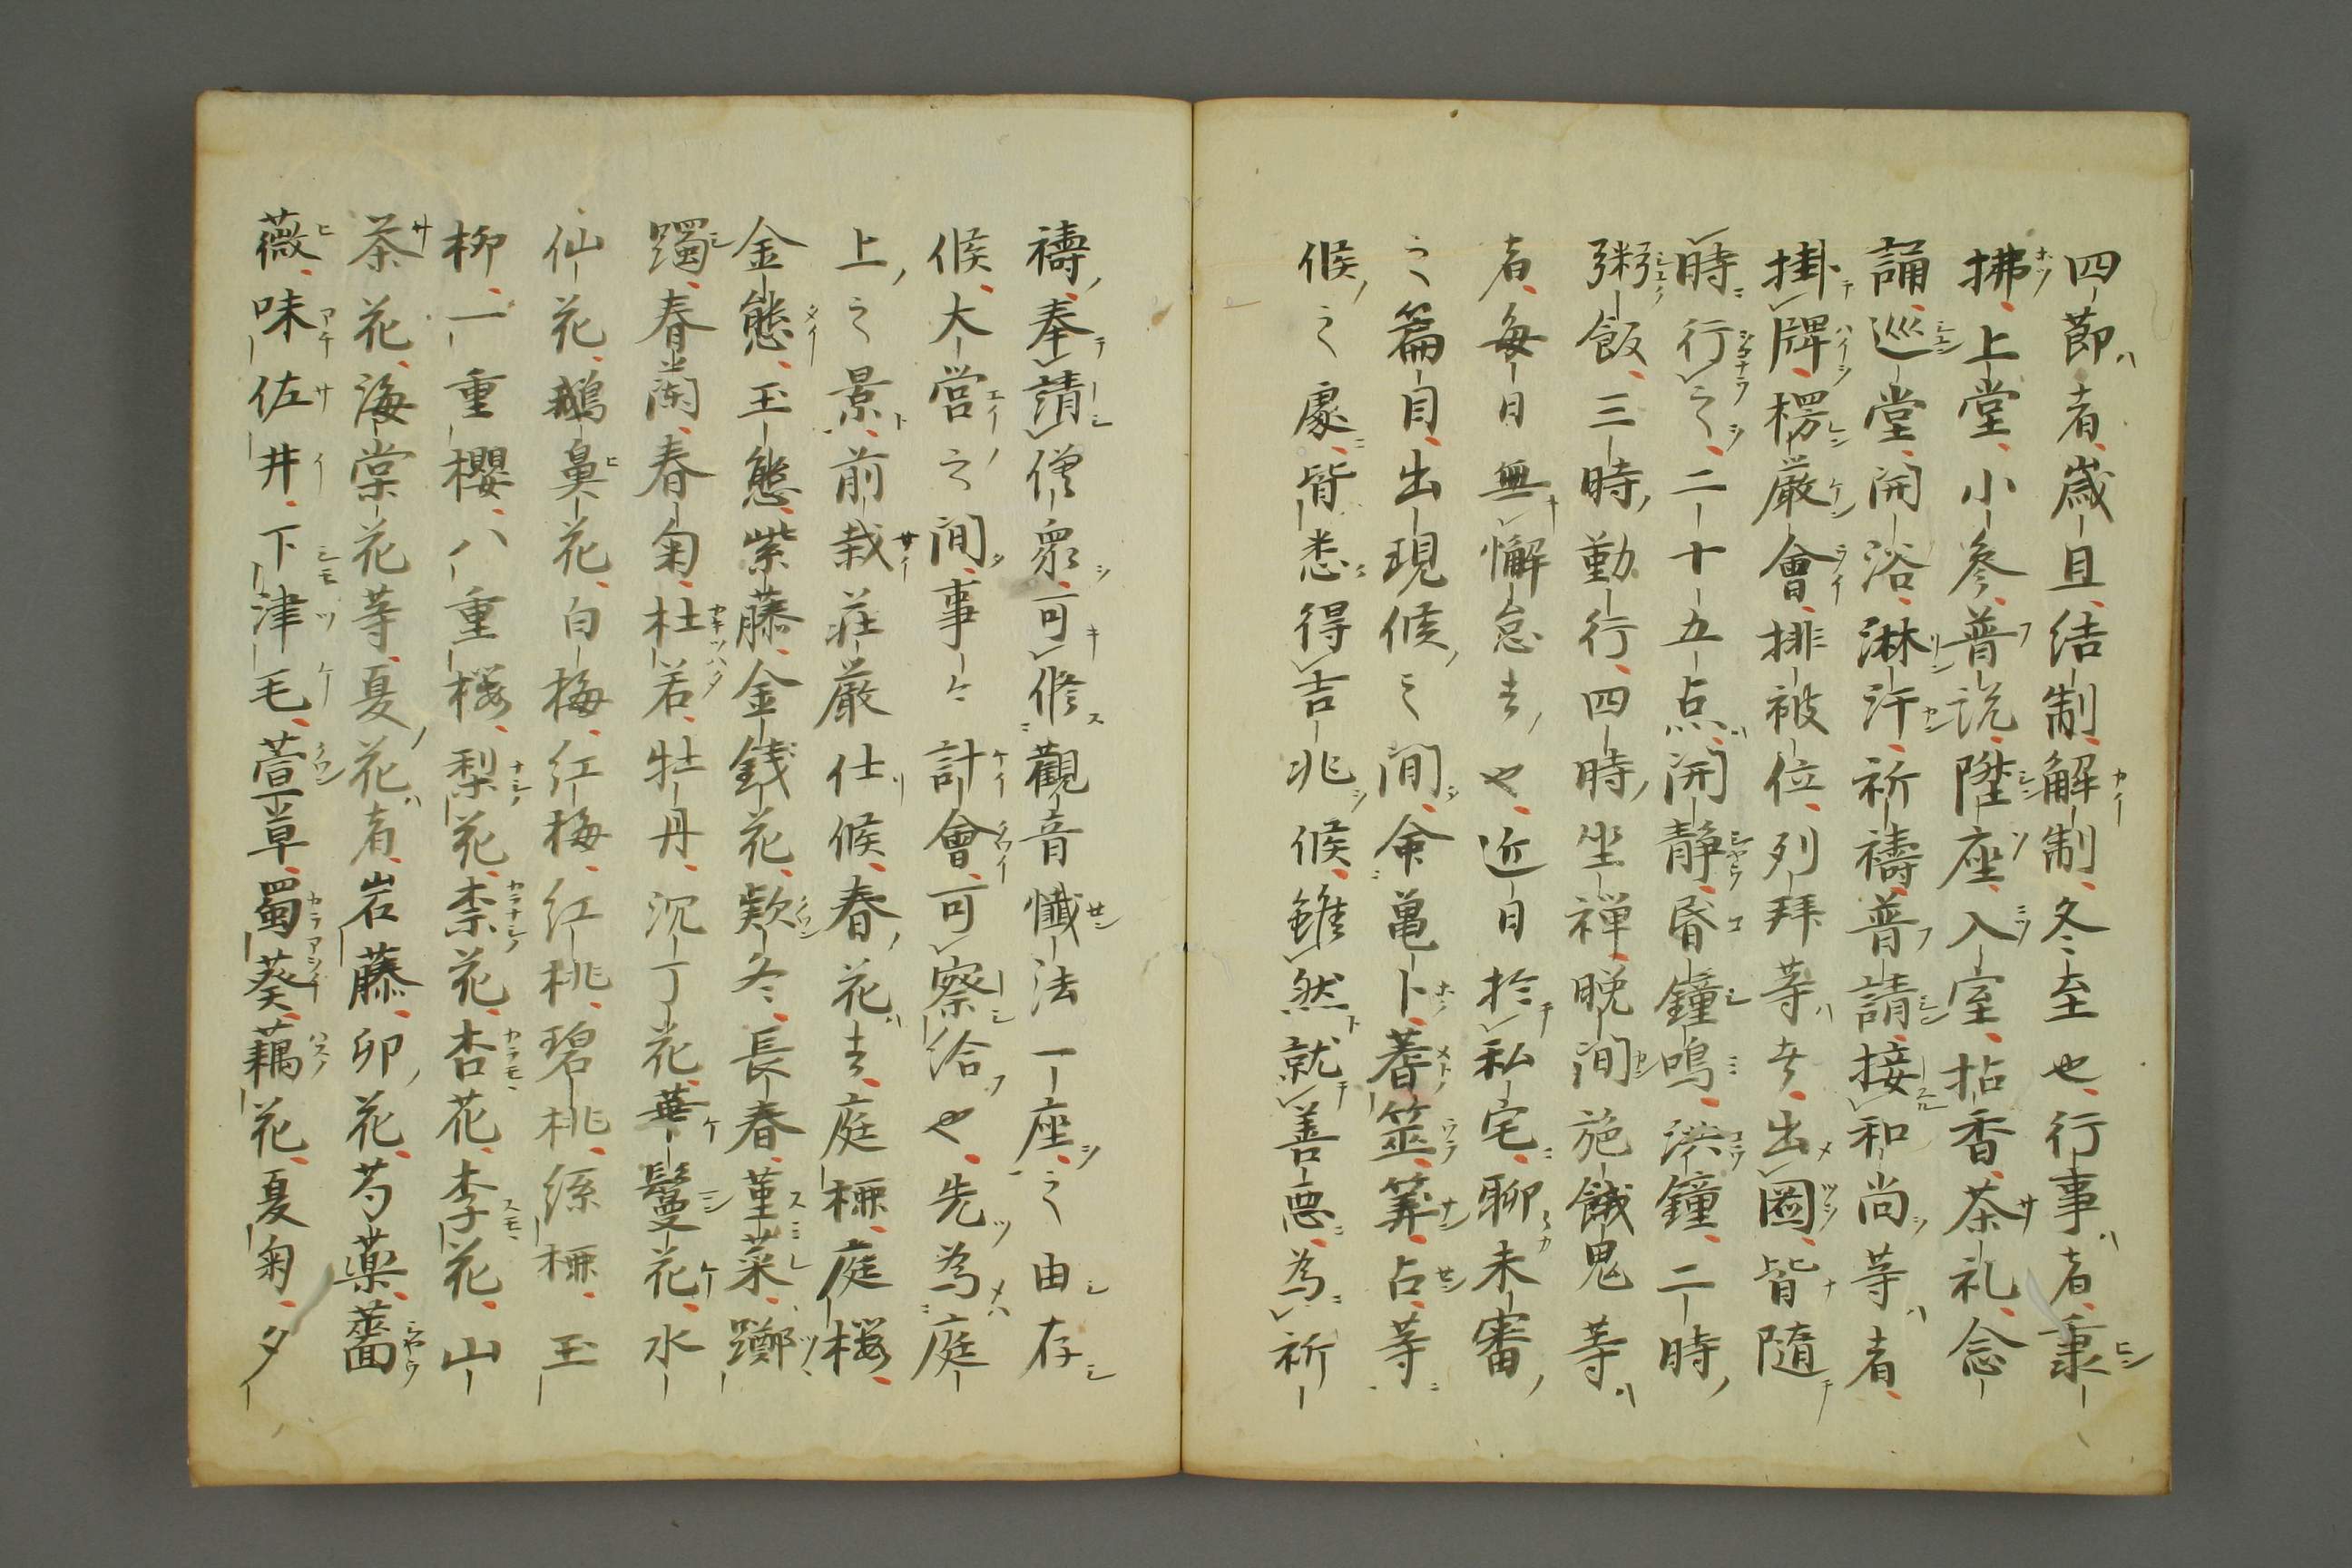 四節者歳旦結制解制冬至也行事者秉
拂上堂小參普説陞座入室拈香茶礼念
誦巡堂開浴淋汗祈禱普請接和尚等者
掛牌楞厳會排被位列拜等去出圏皆随
時行之二十五点開静昏鐘鳴洪鐘二時
粥飯三時勤行四時坐禅晩間施餓鬼等
者毎日無懈怠去也近日於私宅聊未審
之篇目出現候之間命亀卜蓍筮筭占等
候之處皆悉得吉兆候雖然就善悪為祈
禱奉請僧衆可修觀音懺法一座之由存
候大営之間事々計會可察給也先為庭
上之景前栽荘厳仕候春花去庭楝庭桜
金熊玉熊紫藤金銭花欵冬長春菫菜躑
躅春蘭春菊杜若牡丹沉丁花華鬘花水
仙花鵝鼻花白梅紅梅紅桃碧桃絲楝玉
柳一重櫻八重桜梨花柰花杏花李花山
茶花海棠花等夏花者岩藤卯花芍薬薔
薇味佐井下津毛萱草蜀葵藕花夏菊夕